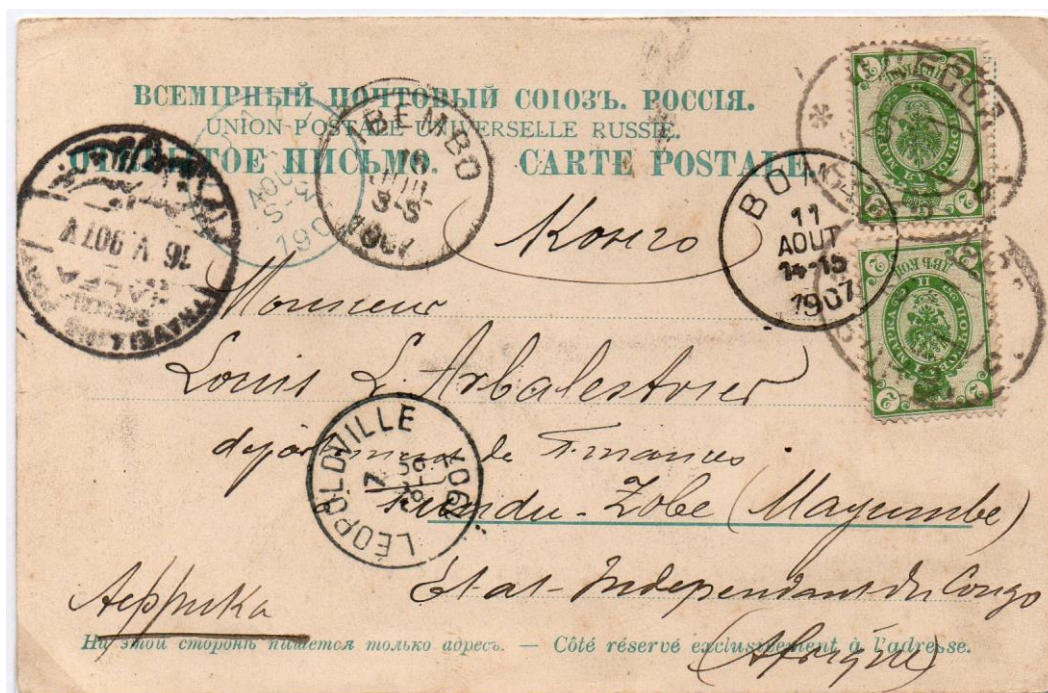 ВСЕМІРНЫЙ ПОЧТОВЫЙ СОЮЗЪ. РОССІЯ.
UNION POSTALE UNIVERSELLE RUSSIE.
ОТКРЫТОЕ ПИСЬМО. CARTE POSTALE.
IBEMBO
16
JUIL
3-S
1907
AOUT
190
BOMA
11
AOUT
14-15
1907
16 V 907
HALFA
TRAVELLING
Конго
Monsieur
Louis L'Arbalestrier
département de Finances
Zobe (Mayumbe)
LÉOPOLDVILLE
1907
État-Independant du Congo
(Afrique)
Аффрика
На этой сторонѣ пишется только адресъ. — Côté réservé exclusivement à l'adresse.
2
2
2
2